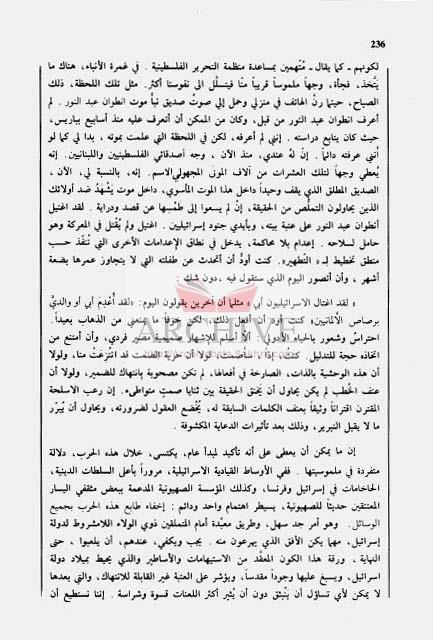 236
لكونهم ـ كما يقال ـ مُتّهمين بمساعدة منظمة التحرير الفلسطينية . في غمرة الأنباء، هناك ما
يتّخذ، فجأة، وجهاً ملموساً قريباً منّا فيتسلّل الى نفوستا أكثر. مثل تلك اللحظة، ذلك
الصباح، حينما رنّ الهاتف في منزلي وحمل إلي صوتُ صديق نبأ موت انطوان عبد النور . لم
أعرف انطوان عبد النور من قبل، وكان من الممكن أن أتعرف عليه منذ أسابيع بباريس،
حيث كان يتابع دراسته . إنني لم أعرفه، لكن في اللحظة التي علمت بموته ، بدا لي كما لو
أنّني عرفته دائماً . إنّ له عندي، منذ الآن ، وجه أصدقائي الفلسطينيين واللبنانيين. إنه
يُعطي وجهاً لتلك العشرات من آلاف الموتى المجهولي الاسم. إنه، بالنسبة لي، الآن ،
الصديق المطلق الذي يقف وحيداً داخل هذا الموت المأسوي، داخل موت يَشْهَدُ ضد أولائك
الذين يحاولون التملُّص من الحقيقة، إنْ لم يسعوا إلى طَمْسِها عن قصد ودراية . لقد اغتيل
أنطوان عبد النور على عتبة بيته، وبأيدي جنود إسرائيليين . اغتيل ولم يُقتل في المعركة وهو
حامل لسلاحه . إعدام بلا محاكمة، يدخل في نطاق الإعدامات الأخرى التي تُنفّذ حسب
منطق تخطيط لـِ « التّطهير». كنت أودُّ أن أتحدث عن طفلته التي لا يتجاوز عمرها بضعة
أشهر ، وأن أتصور اليوم الذي ستقول فيه ، دون شك :
« لقد اغتال الاسرائيليون أبي » مثلما أن آخرين يقولون اليوم: «لقد أُعدِمَ أبي أو والديَّ
برصاص الألمانيين» كنت أود أن أفعل ذلك، لكن خوفاً ما منعني من الذهاب بعيداً.
احتراسٌ وشعور بالحياء الأدبي، ألاّ أستسلم للإشهار بحميمية مصير فردي، وأن أمتنع من
اتخاذه حجة للتدليل. كنت، إذاً، سأصمت، لولا أن حرية الصمت قد انتُزعتْ منا، ولولا
أن هذه الوحشية بالذات، الصارخة في أفعالها، لم تكن مصحوبة بانتهاك للضمير، ولولا أن
عنف الخَطْب لم يكن يحاول أن يخنق الحقيقة بين ثنايا صمتٍ متواطىء. إن رعب الاسلحة
المقترن اقتراناً وثيقاً بعنف الكلمات السابقة له ، يُخْضع العقول لضرورته، ويحاول أن يُبرِّر
ما لا يقبل التبرير، وذلك بعد تأثيرات الدعاية المكشوفة .
إن ما يمكن أن يعطى على أنه تأكيد لمبدأ عام، يكتسي، خلال هذه الحرب، دلالة
متفردة في ملموسيتها . ففي الأوساط القيادية الاسرائيلية، مروراً بأعلى السلطات الدينية،
الحاخامات في إسرائيل وفرنسا، وكذلك المؤسسة الصهيونية المدعمة ببعض مثقفي اليسار
المعتنقين حديثاً للصهيونية، يسيطر اهتمام واحد ودائم : إخفاء طابع هذه الحرب بجميع
الوسائل. وهو أمر جد سهل، وطريق معبَّدة أمام المتملقين ذوي الولاء اللامشروط لدولة
إسرائيل، مهما يكن الأفق الذي يهرعون منه . يجب ويكفي، عندهم، أن يلعبوا ، حتى
النهاية ، ورقة هذا الكون المعقّد من الاستيهامات والأساطير والذي يحيط بميلاد دولة
اسرائيل، ويسبغ عليها وجوداً مقدساً، ويؤشر على العتبة غير القابلة للانتهاك، والتي بعدها
لا يمكن لأي تساؤل أن يَنْبثق دون أن يُثير أكثر اللعنات قسوة وشراسة . إننا نستطيع أن
ARCHIVE